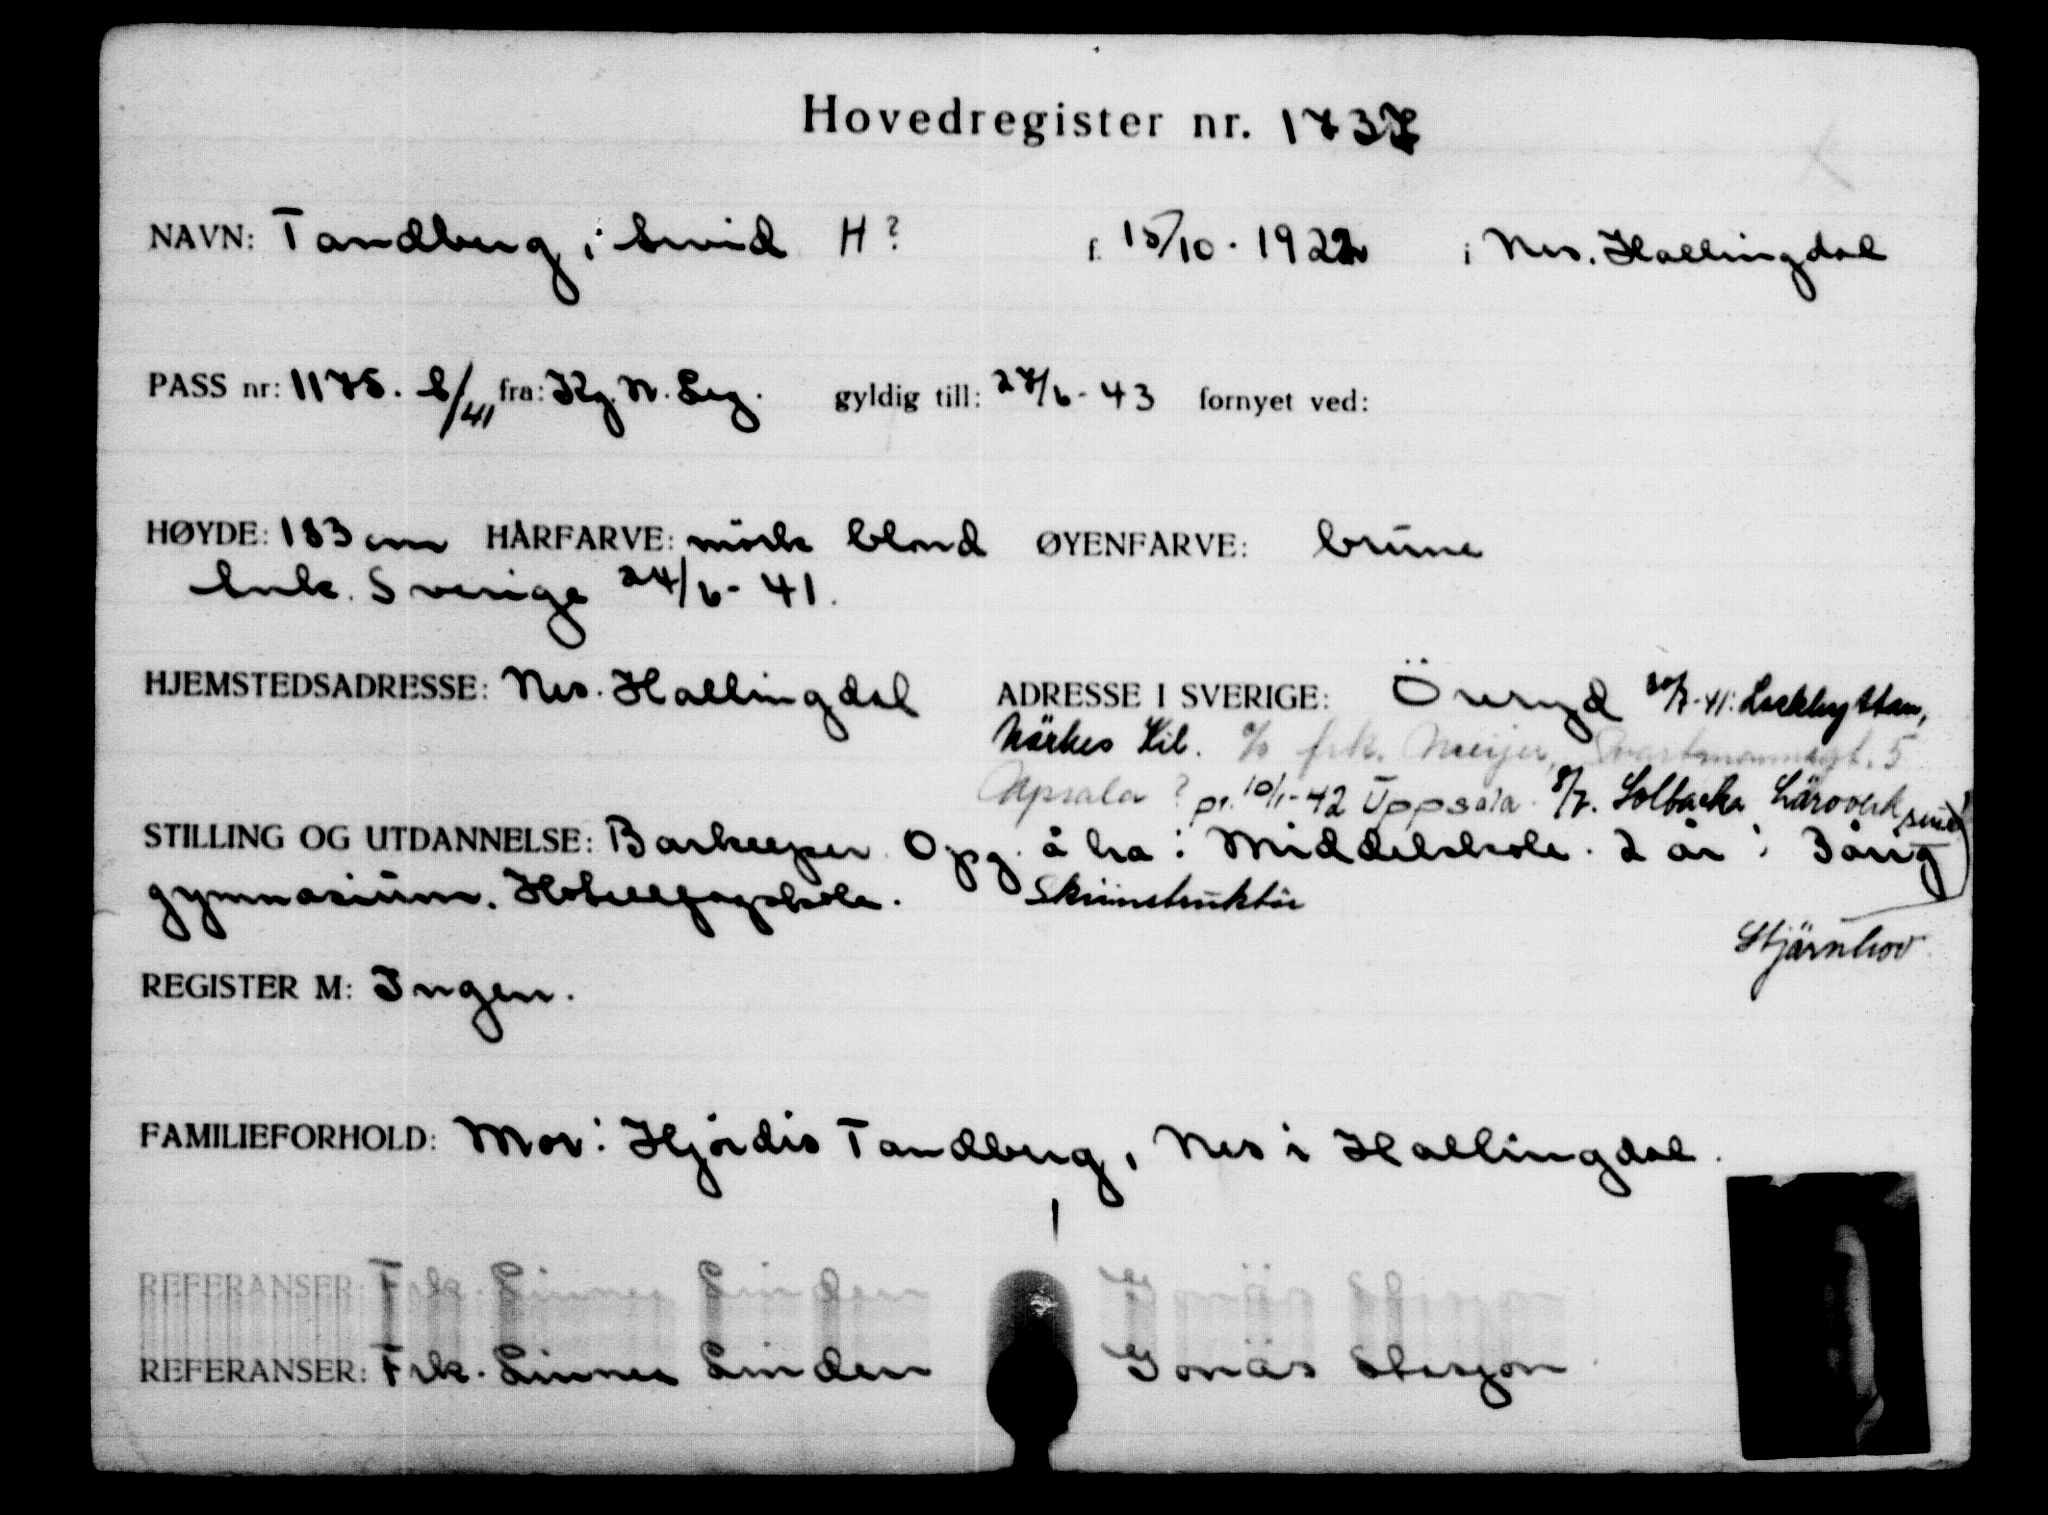 Hovedregister nr. 1737
NAVN: Tandberg, Svid H? f. 15/10-1922 i Nes. Hallingdal
PASS nr: 1175. S/41 fra: Kg. N. Leg. gyldig till: 27/6-43 fornyet ved:
HØYDE: 183 cm HÅRFARVE: mörk blond ØYENFARVE: brune
Ank. Sverige 24/6-41.
HJEMSTEDSADRESSE: Nes. Hallingdal ADRESSE I SVERIGE: Öreryd 30/7-41: Lockhyttan,
Närkes Kil. c/o frk. Meijer, Svartmannagt. 5
Upsala? pr. 10/1-42 Uppsala. 8/7. Solbacka Läroverk
STILLING OG UTDANNELSE: Barkeeper. Opg. å ha: Middelskole. 2 år i 3årig
gymnasium. Hotellfagskole. Skiinstruktör
Stjärnhov
REGISTER M: Ingen.
FAMILIEFORHOLD: Mor: Hjördis Tandberg, Nes i Hallingdal.
REFERANSER: Frk. Linnea Linden
REFERANSER: Frk. Linnea Linden Gonäs Stasjon